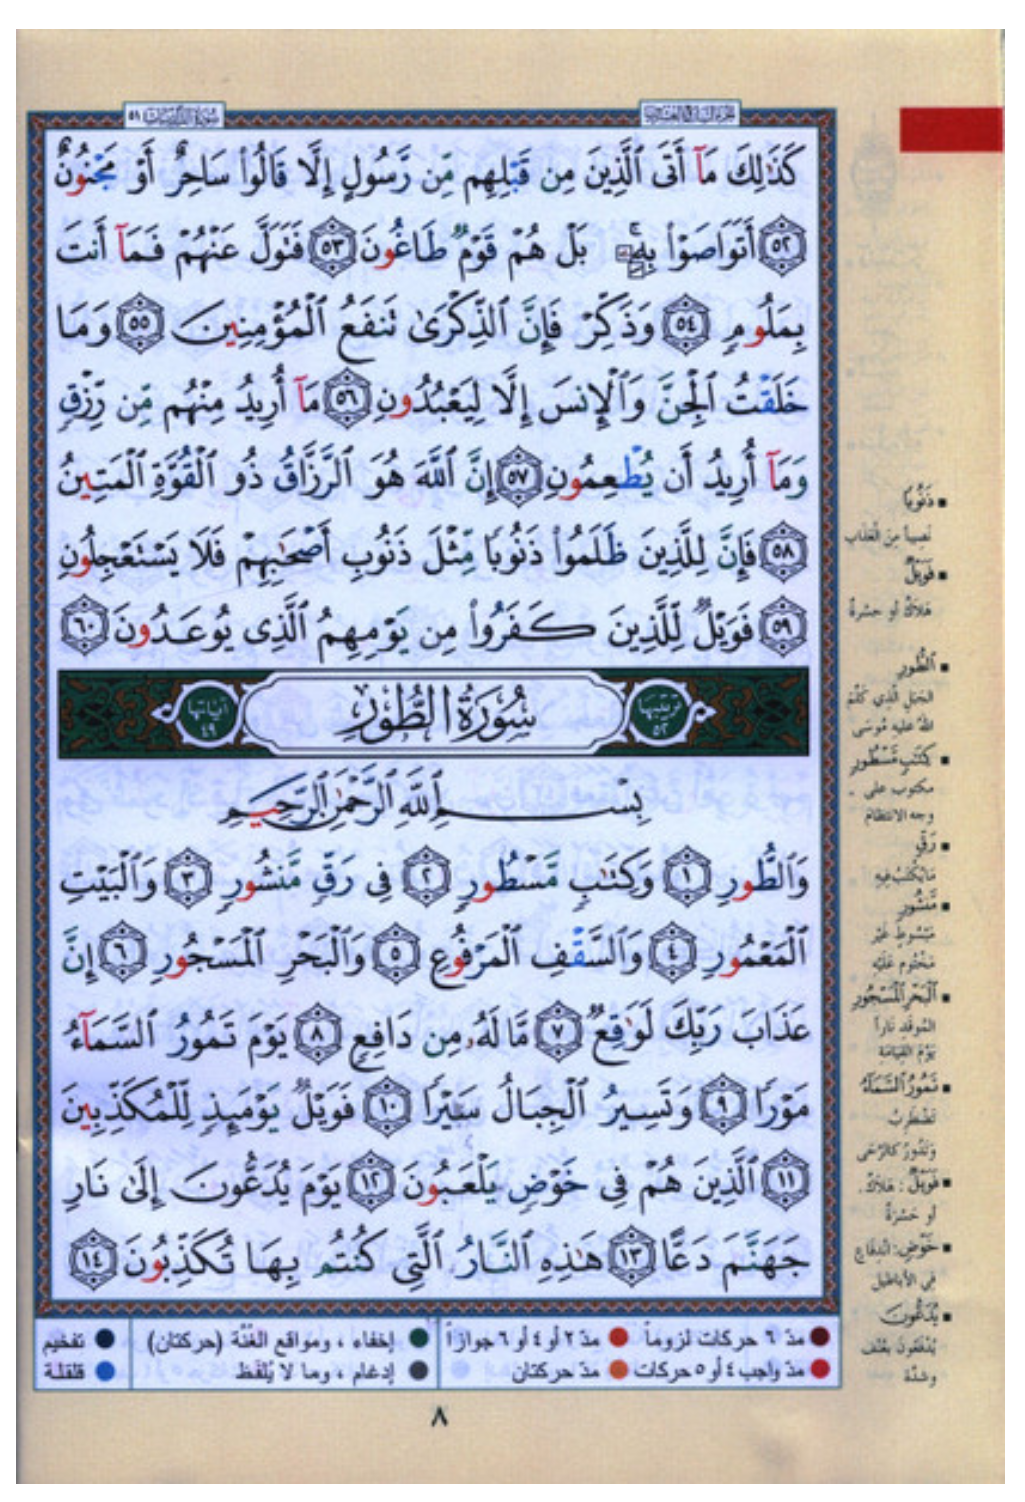 سورة الذاريات ٥١
الجزء السابع والعشرون
كَذَٰلِكَ مَآ أَتَى ٱلَّذِينَ مِن قَبْلِهِم مِّن رَّسُولٍ إِلَّا قَالُوا۟ سَاحِرٌ أَوْ مَجْنُونٌ
٥٢ أَتَوَاصَوْا۟ بِهِۦ ۚ بَلْ هُمْ قَوْمٌ طَاغُونَ ٥٣ فَتَوَلَّ عَنْهُمْ فَمَآ أَنتَ
بِمَلُومٍ ٥٤ وَذَكِّرْ فَإِنَّ ٱلذِّكْرَىٰ تَنفَعُ ٱلْمُؤْمِنِينَ ٥٥ وَمَا
خَلَقْتُ ٱلْجِنَّ وَٱلْإِنسَ إِلَّا لِيَعْبُدُونِ ٥٦ مَآ أُرِيدُ مِنْهُم مِّن رِّزْقٍ
وَمَآ أُرِيدُ أَن يُطْعِمُونِ ٥٧ إِنَّ ٱللَّهَ هُوَ ٱلرَّزَّاقُ ذُو ٱلْقُوَّةِ ٱلْمَتِينُ
٥٨ فَإِنَّ لِلَّذِينَ ظَلَمُوا۟ ذَنُوبًا مِّثْلَ ذَنُوبِ أَصْحَٰبِهِمْ فَلَا يَسْتَعْجِلُونِ
٥٩ فَوَيْلٌ لِّلَّذِينَ كَفَرُوا۟ مِن يَوْمِهِمُ ٱلَّذِى يُوعَدُونَ ٦٠
ترتيبها ٥٢ سُورَةُ الطُّورِ آياتها ٤٩
بِسْمِ ٱللَّهِ ٱلرَّحْمَٰنِ ٱلرَّحِيمِ
وَٱلطُّورِ ١ وَكِتَٰبٍ مَّسْطُورٍ ٢ فِى رَقٍّ مَّنشُورٍ ٣ وَٱلْبَيْتِ
ٱلْمَعْمُورِ ٤ وَٱلسَّقْفِ ٱلْمَرْفُوعِ ٥ وَٱلْبَحْرِ ٱلْمَسْجُورِ ٦ إِنَّ
عَذَابَ رَبِّكَ لَوَٰقِعٌ ٧ مَّا لَهُۥ مِن دَافِعٍ ٨ يَوْمَ تَمُورُ ٱلسَّمَآءُ
مَوْرًا ٩ وَتَسِيرُ ٱلْجِبَالُ سَيْرًا ١٠ فَوَيْلٌ يَوْمَئِذٍ لِّلْمُكَذِّبِينَ
١١ ٱلَّذِينَ هُمْ فِى خَوْضٍ يَلْعَبُونَ ١٢ يَوْمَ يُدَعُّونَ إِلَىٰ نَارِ
جَهَنَّمَ دَعًّا ١٣ هَٰذِهِ ٱلنَّارُ ٱلَّتِى كُنتُم بِهَا تُكَذِّبُونَ ١٤
ذَنُوبًا
نصيباً من العذاب
فَوَيْلٌ
هلاكٌ أو حسرةٌ
ٱلطُّورِ
الجبل الذي كلّم
الله عليه موسى
كِتَٰبٍ مَّسْطُورٍ
مكتوب على
وجه الانتظام
رَقٍّ
ما يُكتب فيه
مَّنشُورٍ
مبسوط غير
مختوم عليه
ٱلْبَحْرِ ٱلْمَسْجُورِ
الموقد ناراً
يوم القيامة
تَمُورُ ٱلسَّمَآءُ
تضطرب
وتدور كالرّحى
فَوَيْلٌ: هلاكٌ
أو حسرةٌ
خَوْضٍ: اندفاع
في الأباطيل
يُدَعُّونَ
يُدفعون بعُنف
وشدّة
مدّ ٦ حركات لزوماً مدّ ٢ أو ٤ أو ٦ جوازاً إخفاء ، ومواقع الغُنَّة (حركتان) تفخيم
مدّ واجب ٤ أو ٥ حركات مدّ حركتان إدغام ، وما لا يُلفَظ قلقلة
٨